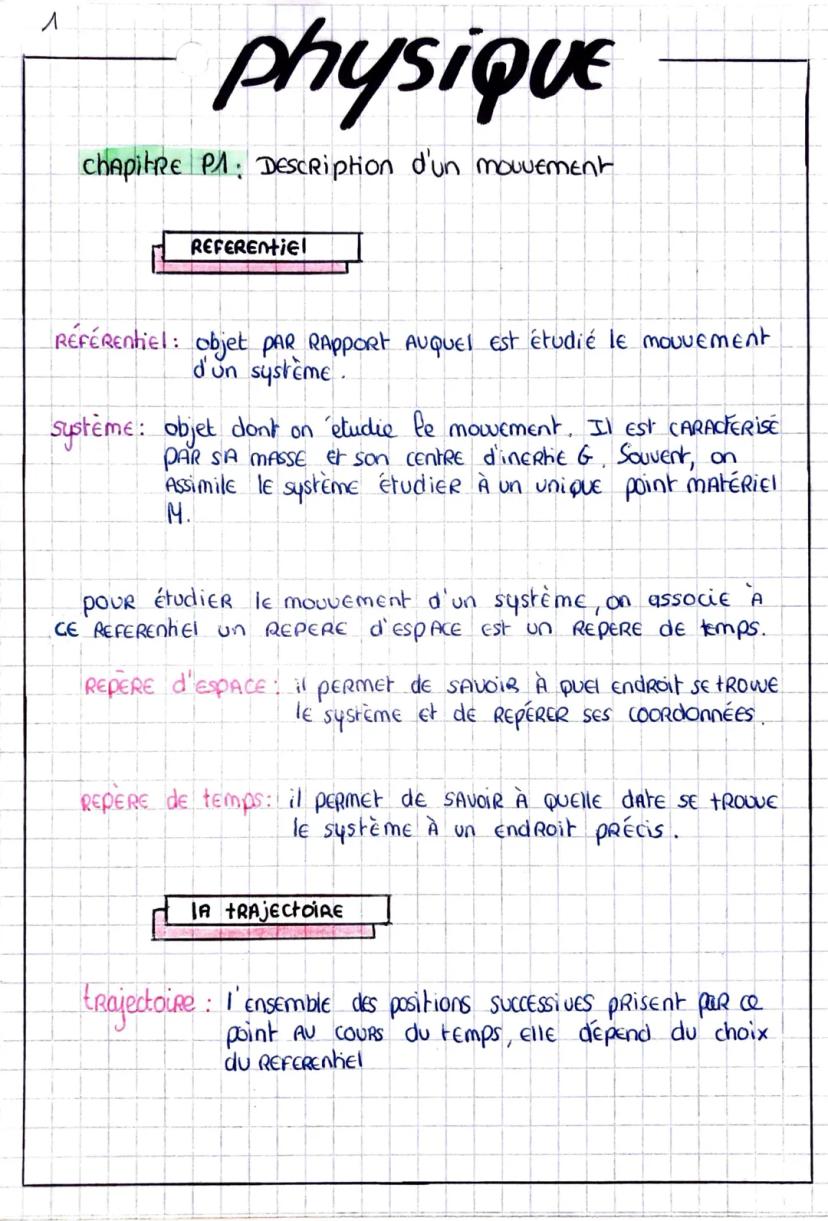 1
physique
chapitre P1: Description d'un mouvement
REFERENtiEl
RÉFÉRENtiel: objet PAR RAPPORT AUQUEl est étudié le mouvement
d'un système.
système: objet dont on étudie le mouvement. Il est CARACTERISÉ
PAR SA MASSE et son centre d'inertie G. Souvent, on
Assimile le système étudier À un unique point matériel
M.
pour étudier le mouvement d'un système, on associe À
CE REFERENtiel un REPERE d'ESPACE est un REPERE de temps.
REPÈRE d'ESPACE: il permet de savoir À quel endroit se trouve
le système et de REPÉRER ses coordonnées.
REPÈRE de temps: il permet de savoir À quelle date se trouve
le système À un endroit précis.
lA tRAjectoiRE
trajectoire: l'ensemble des positions successives prisent par ce
point au cours du temps, elle dépend du choix
du REFERENtiel